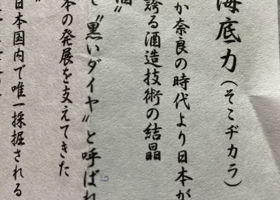 海底力（そこヂカラ）
か奈良の時代より日本が
誇る酒造技術の結晶
酒”
て“黒いダイヤ”と呼ばれ
本の発展を支えてきた
日本国内で唯一採掘される